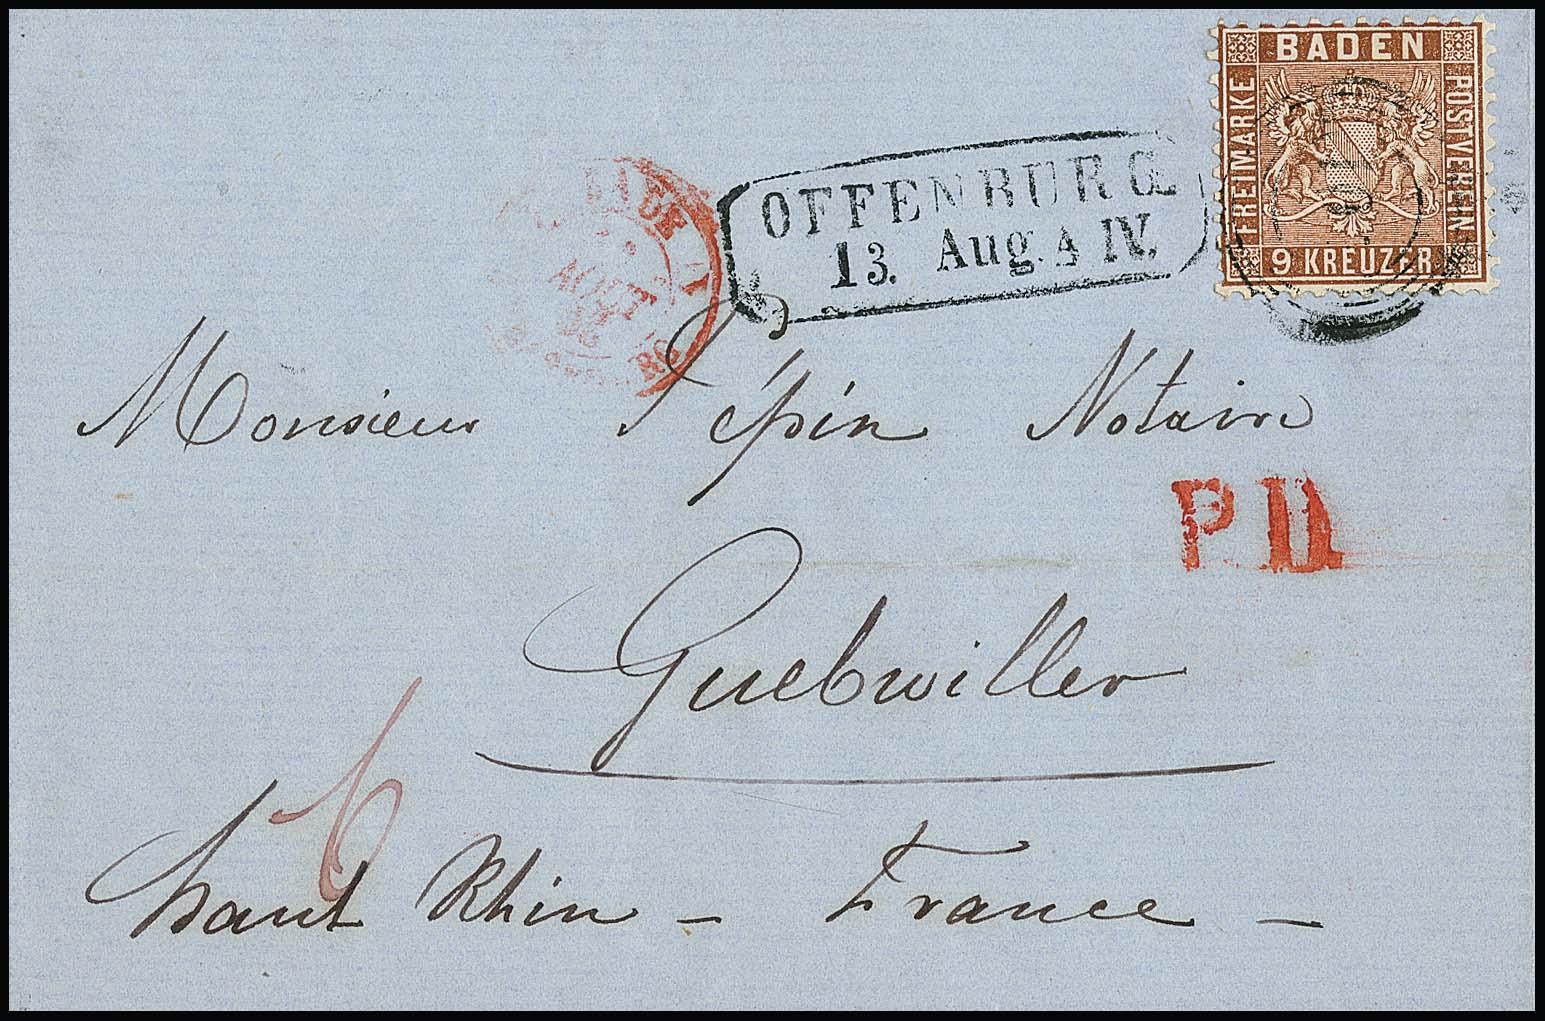 BADEN
FREIMARKE
POSTVEREIN
9 KREUZER
OFFENBURG
13. Aug. 4 IV.
AOUT
Monsieur Pépin Notaire
P.D.
Guebwiller
6
haut Rhin - France -